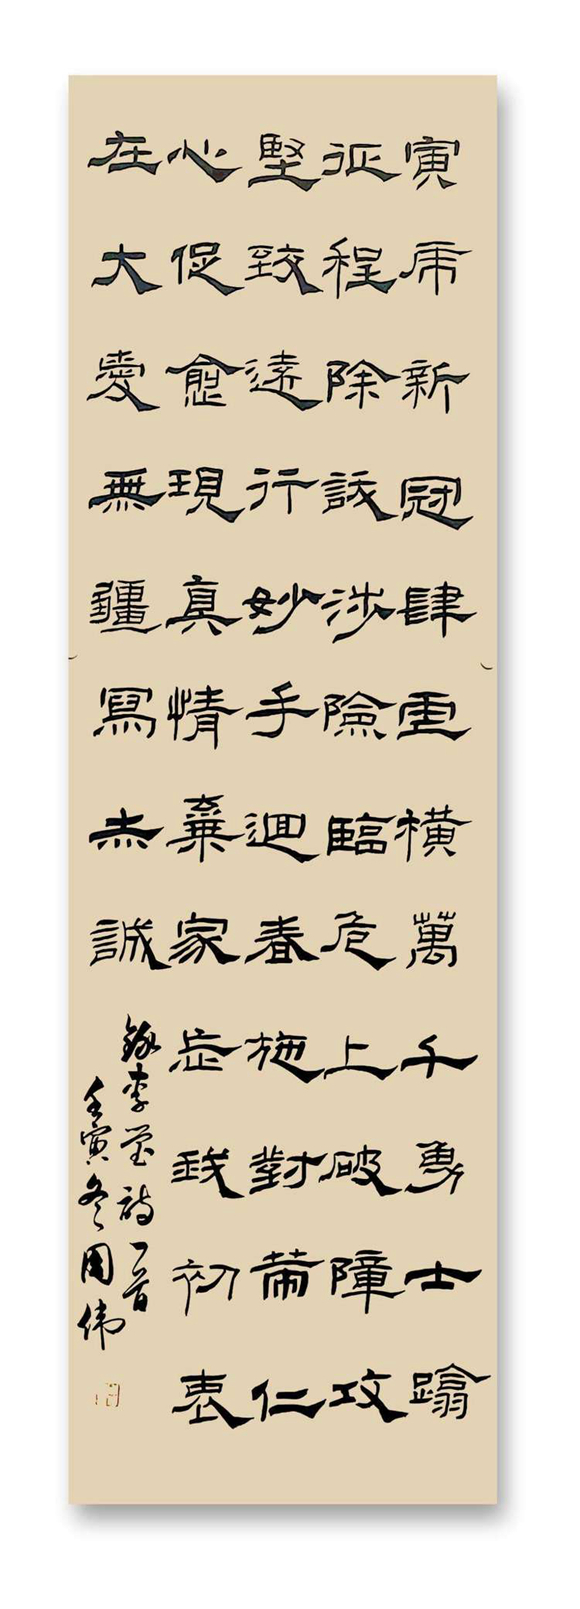 寅虎新冠肆虐橫萬千勇士蹋
征程除涉險臨危上破障攻
堅致遠行妙手迴春施對策仁
心促愈現真情棄家忘我初衷
在大愛無疆寫赤誠
錄李瑩詩一首
壬寅冬周伟